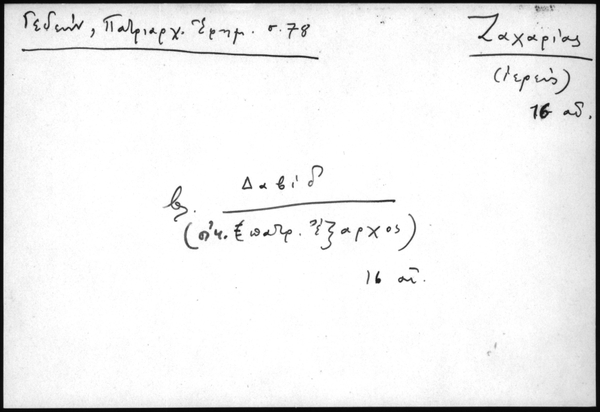 Γεδεών, Πατριαρχ. Ἐφημ. σ. 78
Ζαχαρίας
(ἱερεύς)
16 αἰ.
βλ. Δαβίδ
(οἰκ. & πατρ. Ἔξαρχος)
16 αἰ.